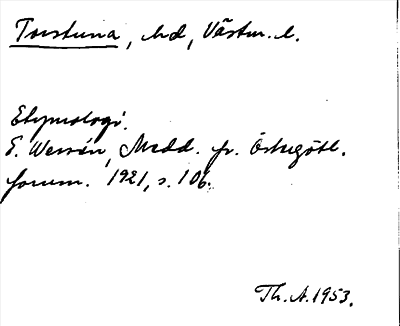 Torstuna, hd, Västm. l.
Etymologi.
E. Wessén, Medd. fr. Östergötl.
fornm. 1921, s. 106.
Th. A. 1953.